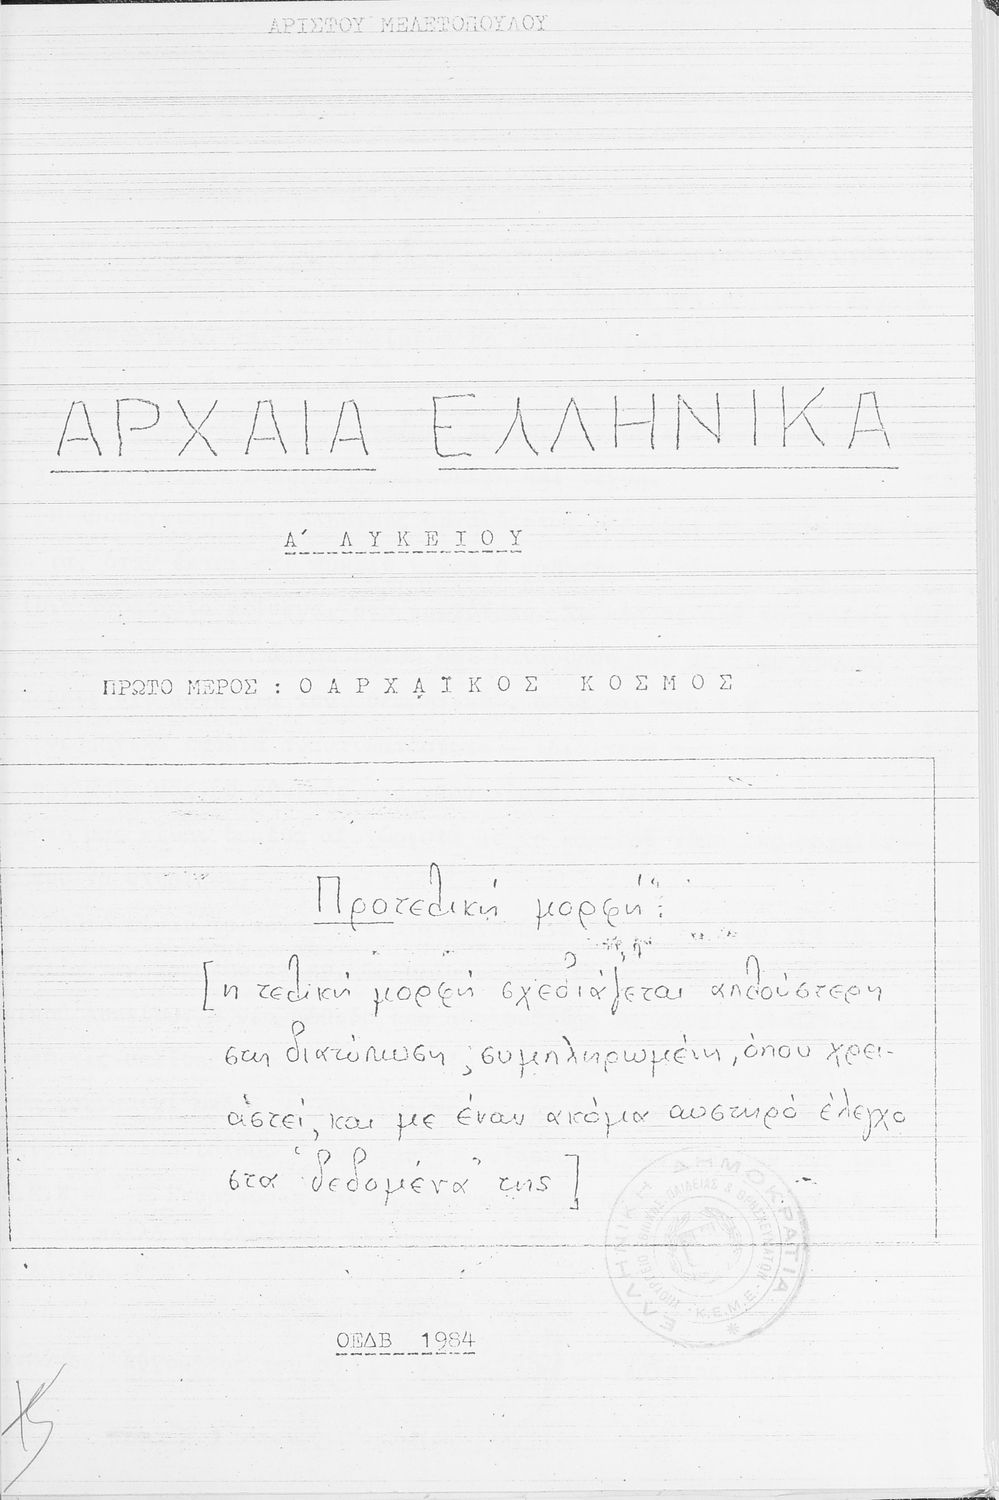 ΑΡΙΣΤΟΥ ΜΕΛΕΤΟΠΟΥΛΟΥ
ΑΡΧΑΙΑ ΕΛΛΗΝΙΚΑ
Α΄ ΛΥΚΕΙΟΥ
ΠΡΩΤΟ ΜΕΡΟΣ : Ο ΑΡΧΑΪΚΟΣ ΚΟΣΜΟΣ
Προτελική μορφή:
[η τελική μορφή σχεδιάζεται απλούστερη
στη διατύπωση, συμπληρωμένη, όπου χρει-
αστεί, και με έναν ακόμα αυστηρό έλεγχο
στα "δεδομένα" της]
ΕΛΛΗΝΙΚΗ ΔΗΜΟΚΡΑΤΙΑ
ΥΠΟΥΡΓΕΙΟ ΕΘΝΙΚΗΣ ΠΑΙΔΕΙΑΣ & ΘΡΗΣΚΕΥΜΑΤΩΝ
Κ.Ε.Μ.Ε.
ΟΕΔΒ 1984